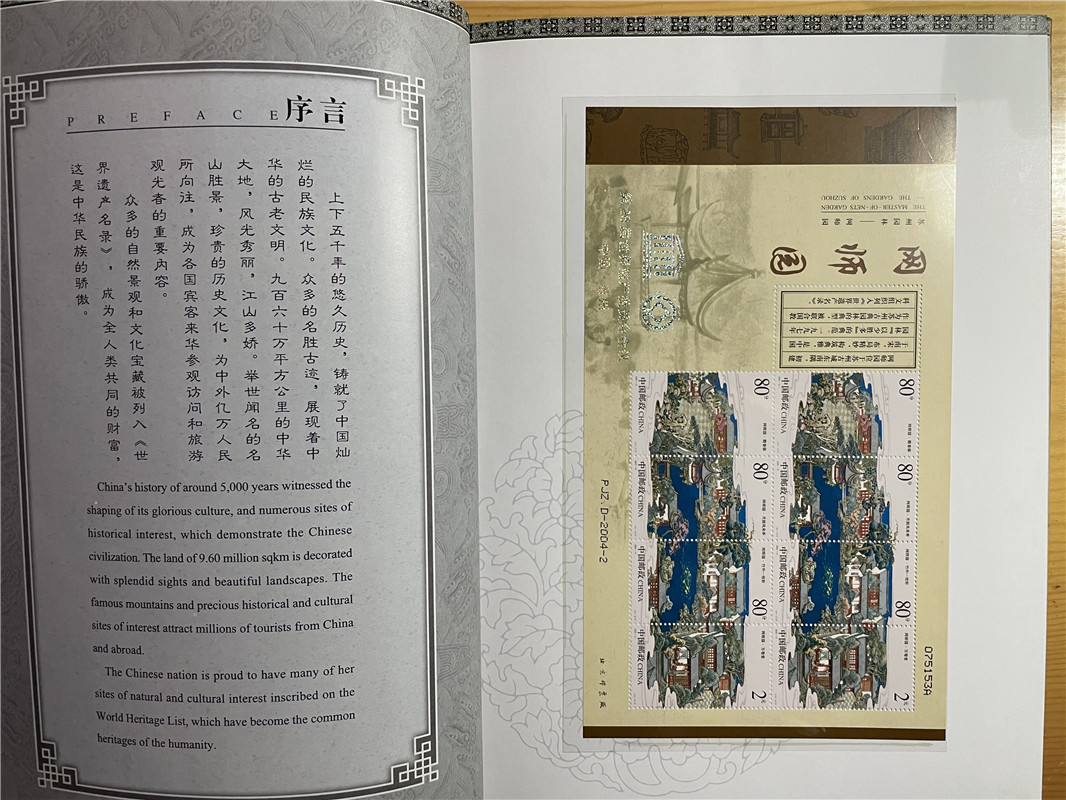 PREFACE 序言
上下五千年的悠久历史，铸就了中国灿
烂的民族文化。众多的名胜古迹，展现着中
华的古老文明。九百六十万平方公里的中华
大地，风光秀丽，江山多娇。举世闻名的名
山胜景，珍贵的历史文化，为中外亿万人民
所向往，成为各国宾客来华参观访问和旅游
观光者的重要内容。
众多的自然景观和文化宝藏被列入《世
界遗产名录》，成为全人类共同的财富，
这是中华民族的骄傲。
China's history of around 5,000 years witnessed the
shaping of its glorious culture, and numerous sites of
historical interest, which demonstrate the Chinese
civilization. The land of 9.60 million sqkm is decorated
with splendid sights and beautiful landscapes. The
famous mountains and precious historical and cultural
sites of interest attract millions of tourists from China
and abroad.
The Chinese nation is proud to have many of her
sites of natural and cultural interest inscribed on the
World Heritage List, which have become the common
heritages of the humanity.
苏州园林——网师园
THE GARDENS OF SUZHOU
THE MASTER-OF-NETS GARDEN
网师园
网师园位于苏州古城东南隅，初建
于南宋，布局精妙，筑典雅，是中国
园林“以少胜多”的典范。一九九七年
作为苏州古典园林的典型，被联合国教
科文组织列入《世界遗产名录》。
80分
中国邮政 CHINA
80分
中国邮政 CHINA
80分
中国邮政 CHINA
80分
中国邮政 CHINA
80分
中国邮政 CHINA
80分
中国邮政 CHINA
2元
中国邮政 CHINA
2元
中国邮政 CHINA
PJZ.D-2004-2
075153A